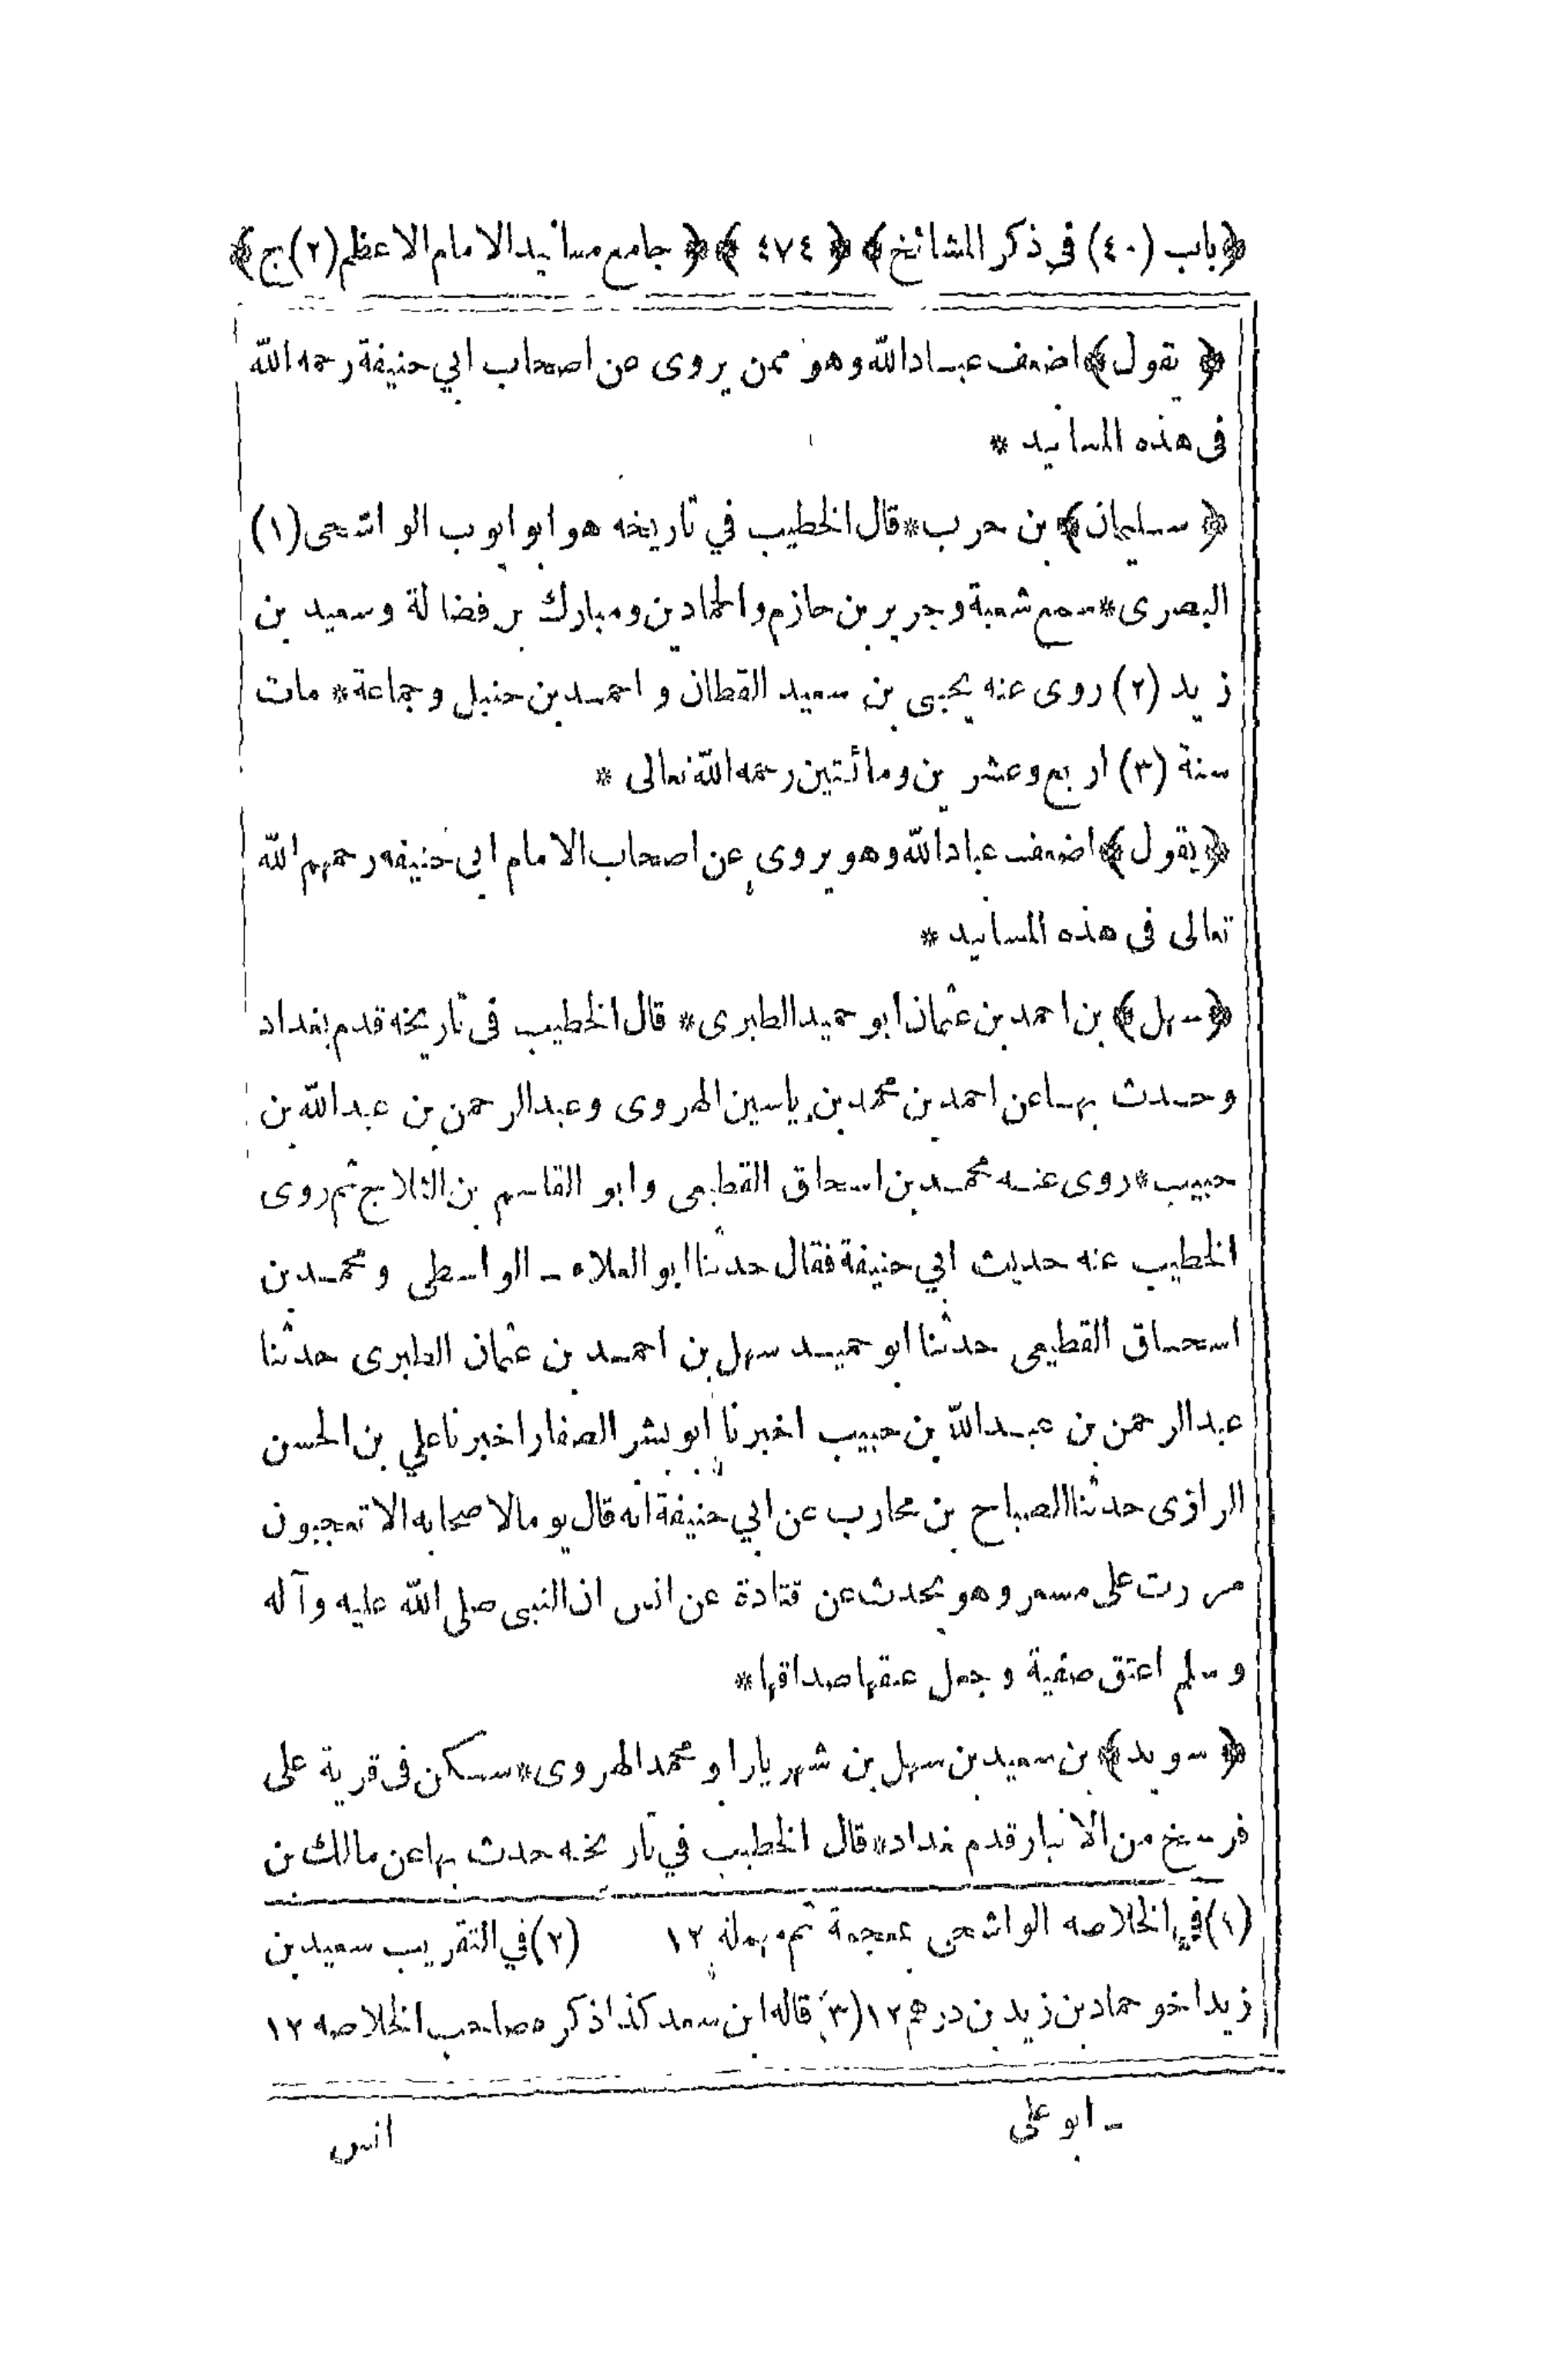 ﴿باب (٤٠) فى ذكر المشائخ﴾ ﴿ ٤٧٤ ﴾ ﴿ جامع مسانيد الامام الاعظم (٢) ج﴾
﴿ يقول﴾ اضعف عباد الله وهو ممن يروى عن اصحاب ابي حنيفة رحمه الله
فى هذه المسانيد *
﴿ سليمان﴾ بن حرب * قال الخطيب في تاريخه هو ابو ايوب الواشحى (١)
البصرى * سمع شعبة وجرير بن حازم والحمادين ومبارك بن فضالة وسعيد بن
زيد (٢) روى عنه يحيى بن سعيد القطان و احمد بن حنبل وجماعة * مات
سنة (٣) اربع وعشرين ومائتين رحمه الله تعالى *
﴿يقول﴾ اضعف عباد الله وهو يروى عن اصحاب الامام ابى حنيفه رحمهم الله
تعالى فى هذه المسانيد *
﴿سهل﴾ بن احمد بن عثمان ابو حميد الطبرى * قال الخطيب فى تاريخه قدم بغداد
وحدث بها عن احمد بن محمد بن ياسين الهروى وعبد الرحمن بن عبد الله بن
حبيب * روى عنه محمد بن اسحاق القطيعى وابو القاسم بن الثلاج ثم روى
الخطيب عنه حديث ابي حنيفة فقال حدثنا ابو العلاء ـ الواسطى و محمد بن
اسحاق القطيعى حدثنا ابو حميد سهل بن احمد بن عثمان الطبرى حدثنا
عبد الرحمن بن عبد الله بن حبيب اخبرنا ابو بشر الصفار اخبرنا علي بن الحسن
الرازى حدثنا الصباح بن محارب عن ابي حنيفة انه قال يوما لاصحابه الا تعجبون
مررت على مسعر وهو يحدث عن قتادة عن انس ان النبى صلى الله عليه وآله
وسلم اعتق صفية وجعل عتقها صداقها *
﴿ سويد﴾ بن سعيد بن سهل بن شهريار ابو محمد الهروى * سكن فى قرية على
فرسخ من الانبار قدم بغداد * قال الخطيب في تاريخه حدث بها عن مالك بن
(١) في الخلاصه الواشحى بمعجمة ثم مهملة ١٢ (٢) في التقريب سعيد بن
زيد اخو حماد بن زيد بن درهم ١٢ (٣) قاله ابن سعد كذا ذكره صاحب الخلاصه ١٢
ـ ابو على
انس